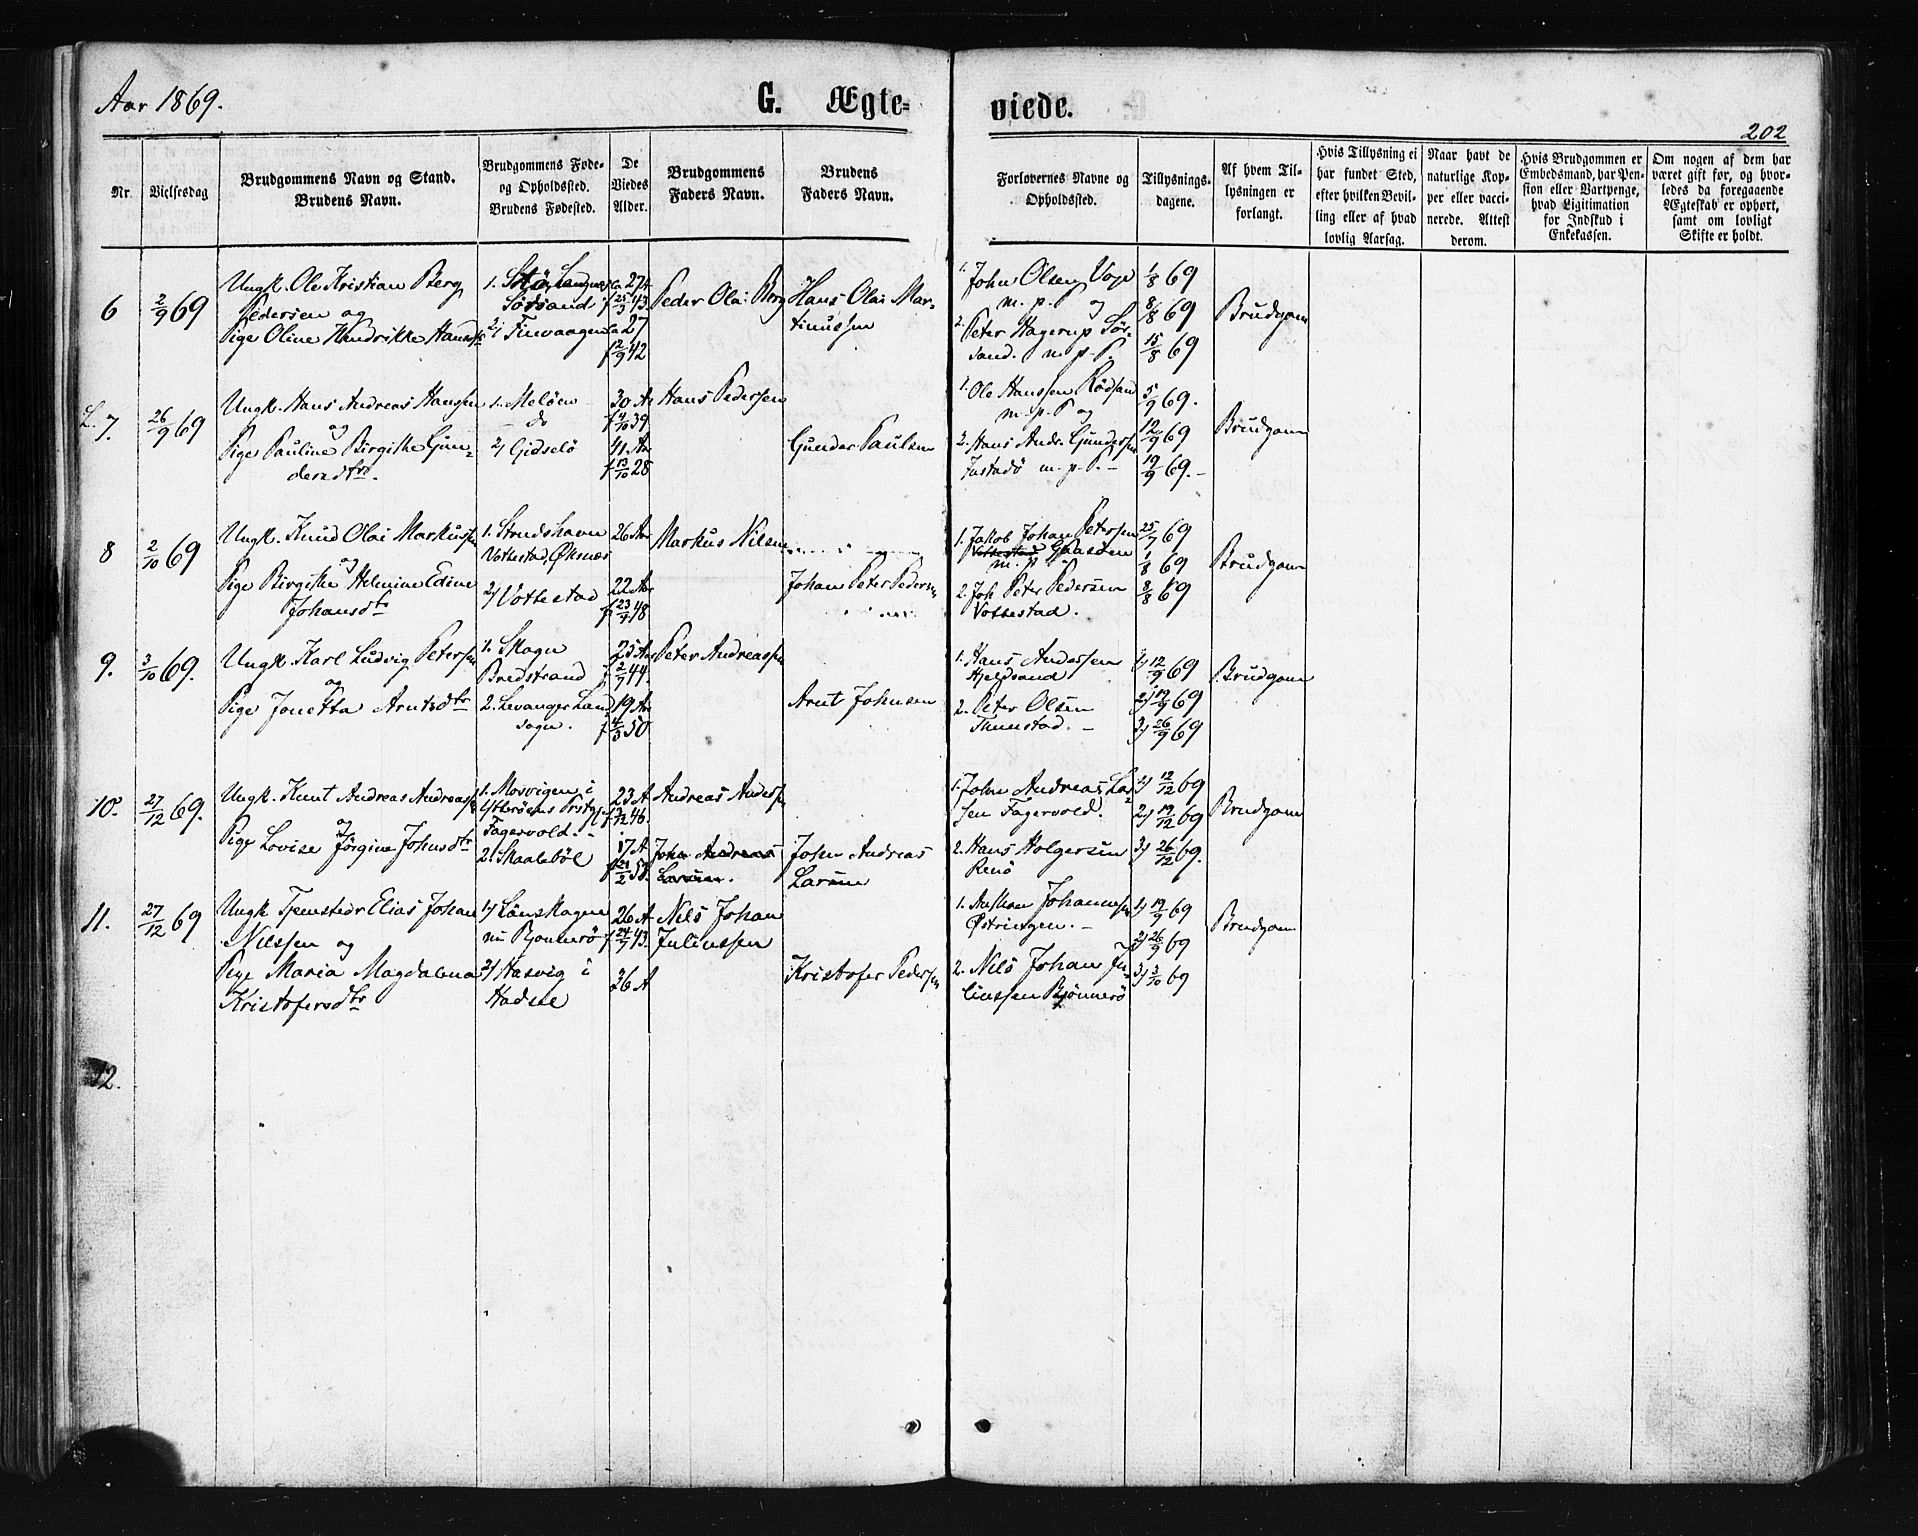 Aar 1869.
G. Ægte-
viede.
202
Nr.
Vielsesdag
Brudgommens Navn og Stand.
Brudens Navn.
Brudgommens Føde-
og Opholdssted.
Brudens Fødested.
De
Viedes
Alder.
Brudgommens
Faders Navn.
Brudens
Faders Navn.
Forlovernes Navne og
Opholdssted.
Tillysnings-
dagene.
Af hvem Til-
lysningen er
forlangt.
Hvis Tillysning ei
har fundet Sted,
efter hvilken Bevil-
ling eller af hvad
lovlig Aarsag.
Naar havt de
naturlige Kop-
per eller vacci-
nerede. Attest
derom.
Hvis Brudgommen er
Embedsmand, har Pen-
sion eller Vartpenge,
hvad Ligitimation
for Indskud i
Enkekassen.
Om nogen af dem har
været gift før, og hvor-
ledes da foregaaende
Ægteskab er ophørt,
samt om lovligt
Skifte er holdt.
6
2/9 69
Ungk. Ole Kristian Berg
Pedersen og
Pige Oline Hendrikke Hansd
1.
Sørsand
2) Finvaagen
ca 27
f 25/3 43.
ca 27
f 2/9 42
Peder Olai Berg
Hans Olai Mar-
tinussen
1. John Olsen Vage
m.p.P og
2. Peter Hagerup Sør-
sand. m.p.P.
1/8 69
8/8 69
15/8 69
Brudgom
L. 7.
26/9 69
Ungk. Hans Andreas Hansen
og
Pige Pauline Birgithe Gun-
dersdtr.
1. Meløen
do
2) Gidselø
30 Ar
f 4/10 39
41 Ar
f 13/10 28
Hans Pedersen
Gunder Paulsen
1. Ole Hanssen Rødsand
m.p.P og
2. Hans Andr. Gundersen
Jastadø m.p.P. -
5/9 69.
12/9 69
19/9 69. -
Brudgom
8
2/10 69
Ungk. Knud Olai Markussen
og
Pige Birgithe Helmine Edine
Johansdtr
1. Strudshavn
Vottestad, Øksnæs
2) Vottestad
26 Aar
22 Ar
f 23/7 48
Markus Nilsen
Johan Peter Pedersen
1. Jakob Johan Petersen
Vottestad Gaasøen
m.p.
2. Joh Peter Pedersen
Vottestad.
25/7 69
1/8 69
8/8 69
Brudgom
9.
3/10 69.
Ungk. Karl Ludvig Petersen
og
Pige Jonetta Arntsdtr
1. Skogn
Bredstrand
2. Levanger Land
sogn.
25 Aar
f 2/7 44.
19 Ar
f 4/3 50
Peter Andreassen
Arnt Johnsen
1. Hans Andersen
Hjelpsand
2. Peter Olsen
Tunstad. -
1) 12/9 69
2) 19/9 69
3) 26/9 69
Brudgom
10.
27/12 69.
Ungk. Knut Andreas Andreass
og
Pige Lovise Jørgine Johnsdtr
1. Mosvigen i
Ytterøens Prstgl
Fagervold. -
2) Skaalebøl
23 A
17 A
Andreas Anders
John Andreas
Larsen.
John Andreas
Larsen
1. John Andreas Lar-
sen Fagervold.
2. Hans Holgersen
Renø
1) 12/12 69
2) 19/12 69
3) 26/12 69.
Brudgom
11.
27/12 69
Ungk Tjenstedr Elias Johan
Nilssen og
Pige Maria Magdalena
Kristofersdtr
1) Lønskogen
nu Bjønnerø
2) Hasvig i
Hadsel
26 A
f 24/7 43.
36 A
Nils Johan
Juliussen
Kristofer Pedersen
1. Johannesen
Østringen. -
2. Nils Johan Ju-
liussen Bjønnerö
1) 19/9 69
2) 26/9 69
3) 3/10 69
Brudgom
12.